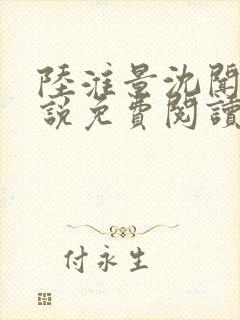 陸淮景沈聞
說免費閱讀
付永生